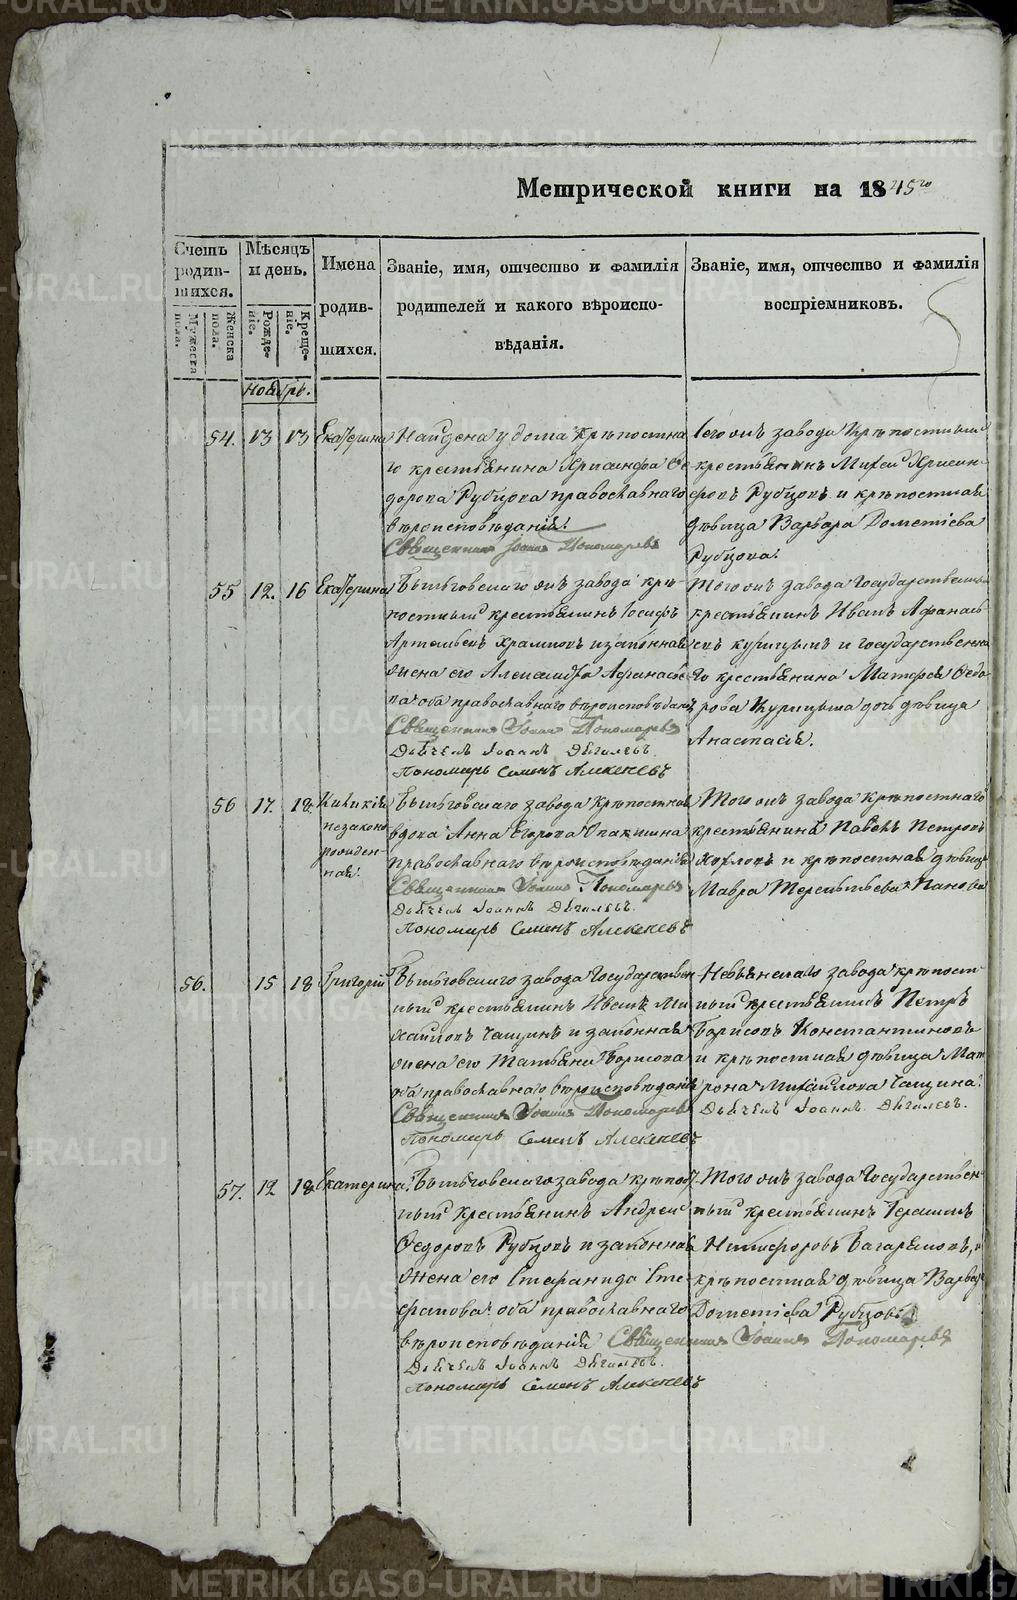 Метрической книги на 1845го
Счетъ родившихся.
Мужеска пола.
Женска пола.
Мѣсяцъ и день.
Рожденіе.
Крещеніе.
Имена родившихся.
Званіе, имя, отчество и фамилія родителей и какого вѣроисповѣданія.
Званіе, имя, отчество и фамилія воспріемниковъ.
Ноябрь.
54. 13 13 Екатерина
Найдена у дома крѣпостна
го крестьянина Хрисанфа Ѳе
дорова Рубцова православнаго
вѣроисповѣданія.
Священникъ Іоаннъ Пономаревъ
Сегожъ завода крѣпостный
крестьянинъ Михей Хрисан-
фовъ Рубцовъ и крѣпостная
дѣвица Варвара Дометіева
Рубцова.
55 12. 16 Екатерина
завода крѣ-
постный крестьянинъ Іосифъ
Артемьевъ Храмовъ и законная
жена его Александра Афанасье
ва оба православнаго вѣроисповѣданія
Священникъ Іоаннъ Пономаревъ
Діячекъ Іоаннъ Дягилевъ.
Пономарь Семенъ Алексеевъ
Тогожъ завода Государственный
крестьянинъ Иванъ Афанась
евъ Курицынъ и государственна
го крестьянина Матфея Ѳедо
рова Курицына дочь дѣвица
Анастасія.
56 17. 18.
незаконо
рожден-
ная.
завода крѣпостная
вдова Анна Егорова
православнаго вѣроисповѣданія
Священникъ Іоаннъ Пономаревъ
Діячекъ Іоаннъ Дягилевъ.
Пономарь Семенъ Алексеевъ
Тогожъ завода крѣпостнаго
крестьянина Павелъ Петровъ
Козловъ и крѣпостная дѣвица
Мавра Терентьева Панова
56. 15 18 Григорій
завода Государствен
ный крестьянинъ Иванъ Ми
хайловъ Чащинъ и законная
жена его Татьяна Борисова
оба православнаго вѣроисповѣданія
Священникъ Іоаннъ Пономаревъ
Пономарь Семенъ Алексеевъ
Невьянскаго завода крѣпост-
ный крестьянинъ Петръ
Борисовъ Константиновъ
и крѣпостная дѣвица Мат
рона Михайлова Чащина.
Діячекъ Іоаннъ Дягилевъ.
57. 12 18 Екатерина.
завода крѣпост
ный крестьянинъ Андрей
Ѳедоровъ Рубцовъ и законная
жена его Стефанида Сте
фанова оба православнаго
вѣроисповѣданія Священникъ Іоаннъ Пономаревъ
Діячекъ Іоаннъ Дягилевъ.
Пономарь Семенъ Алексеевъ
Тогожъ завода Государствен
ный крестьянинъ Герасимъ
Никифоровъ Багаряковъ, и
крѣпостная дѣвица Варвар
Дометіева Рубцова
METRIKI.GASO-URAL.RU